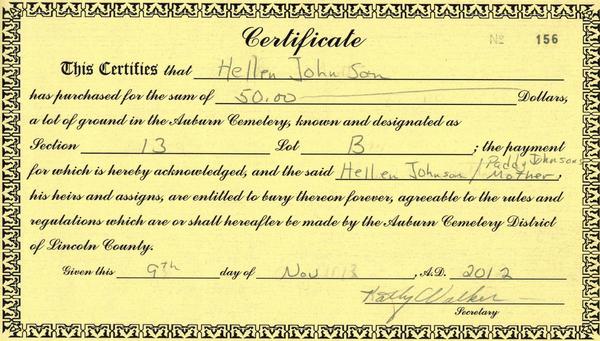 Certificate
Nº 156
This Certifies that Hellen Johnson
has purchased for the sum of 50.00 Dollars,
a lot of ground in the Auburn Cemetery, known and designated as
Section 13 Lot B ; the payment
for which is hereby acknowledged, and the said Hellen Johnson / Paddy Johnsons Mother ,
his heirs and assigns, are entitled to bury thereon forever, agreeable to the rules and
regulations which are or shall hereafter be made by the Auburn Cemetery District
of Lincoln County.
Given this 9th day of Nov , A.D. 2012
Kathy Walker
Secretary